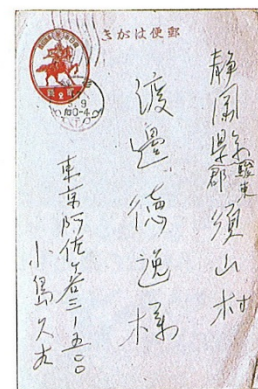 郵便はがき
静岡縣駿東郡須山村
渡邊德逸様
東京阿佐ヶ谷三ー五〇〇
小島久太